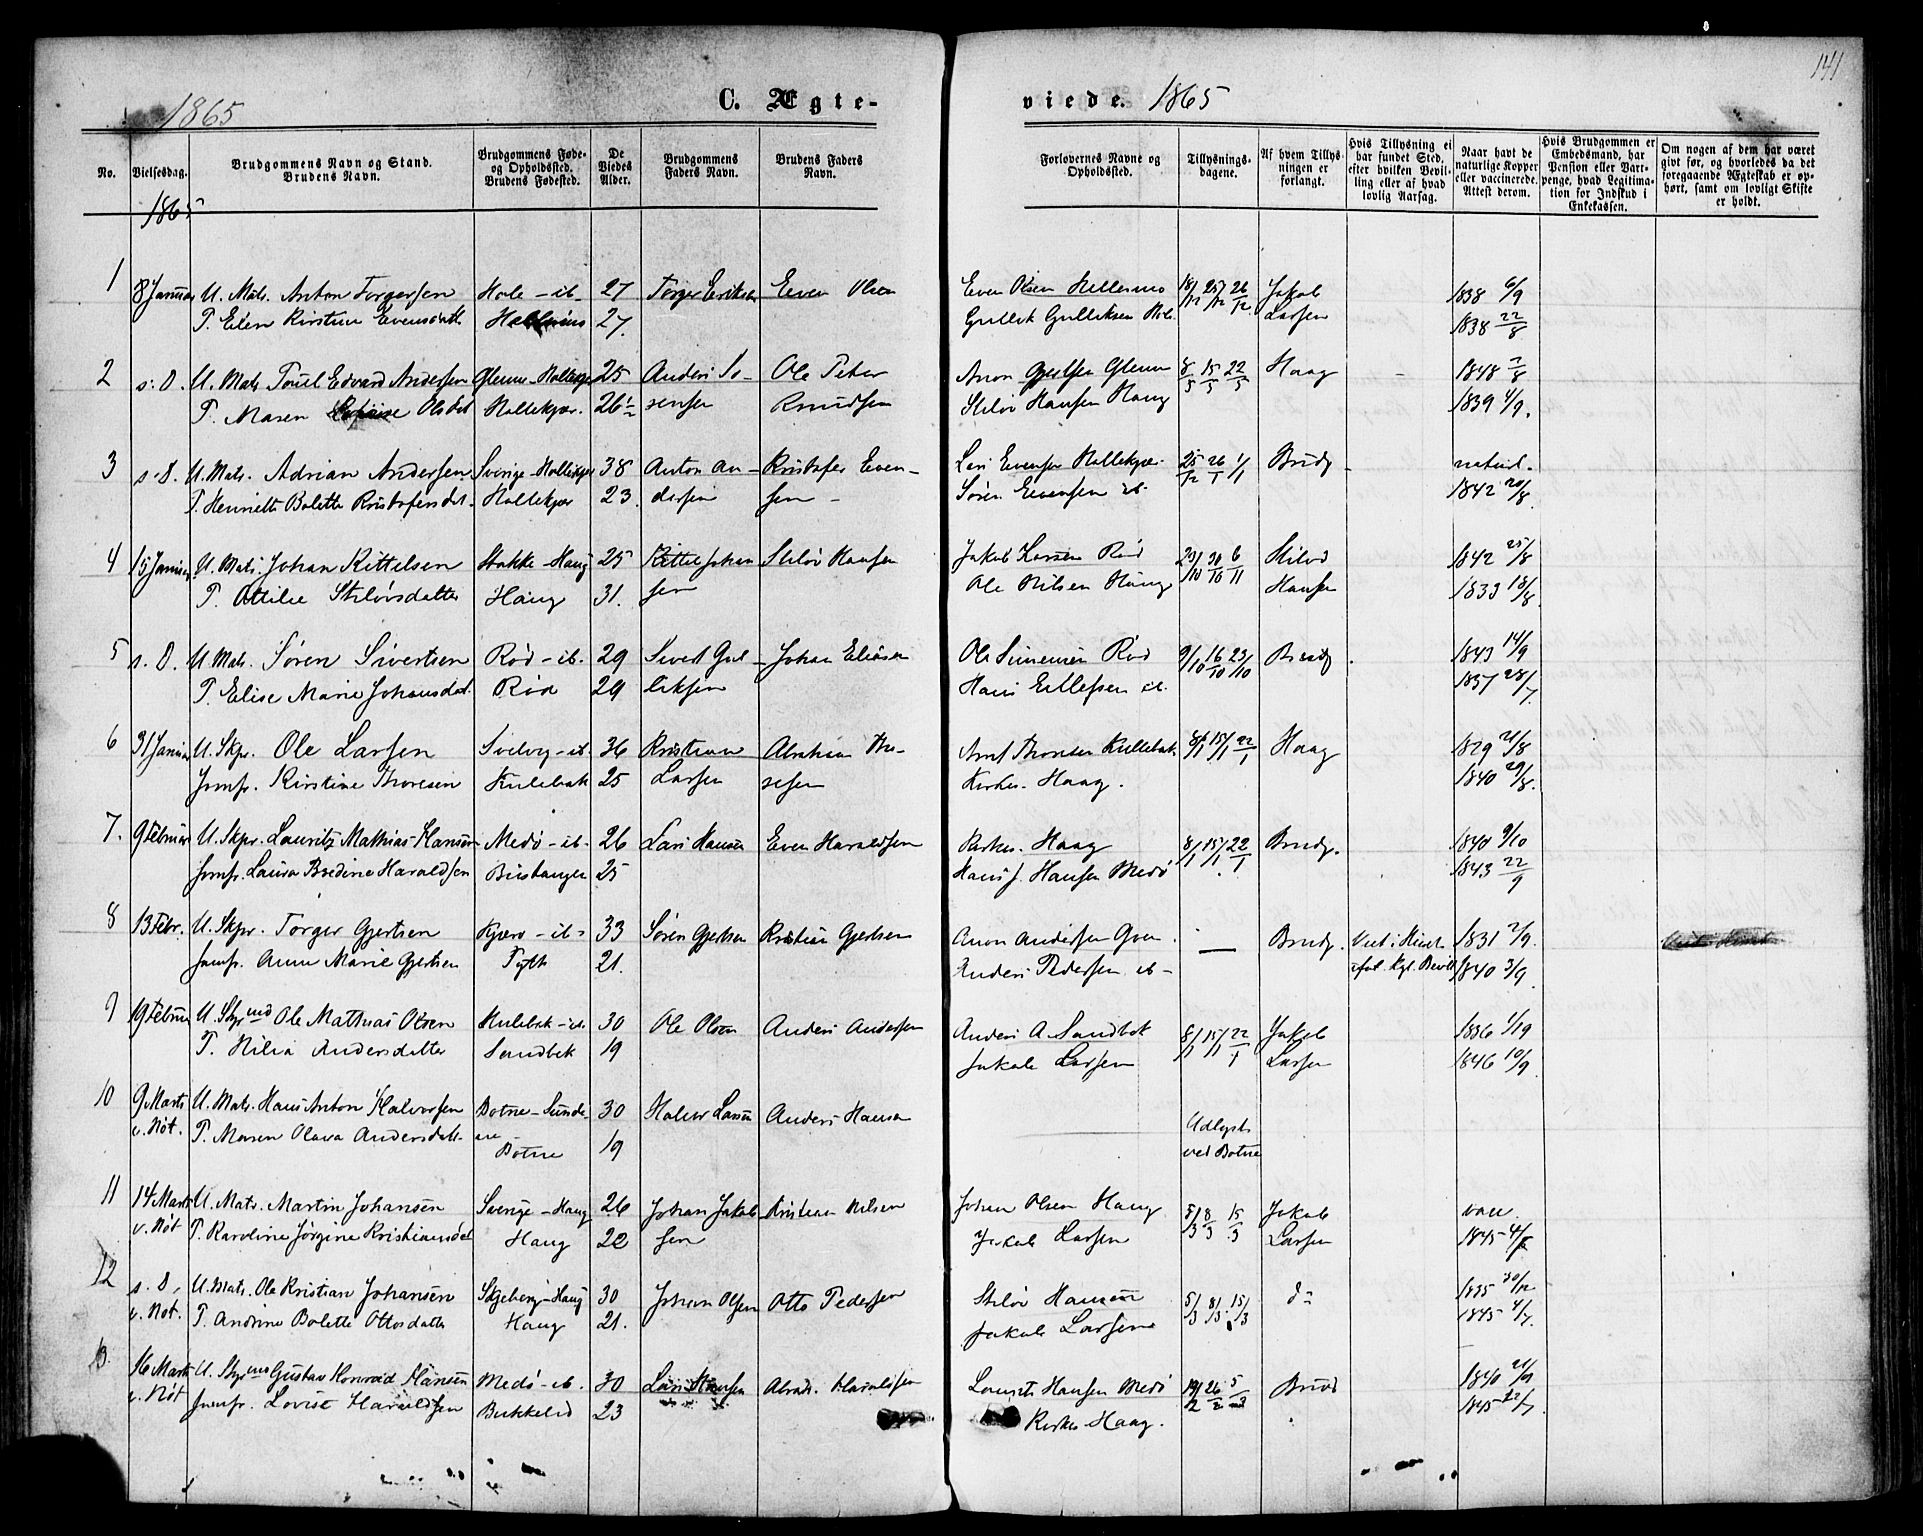 141
1865
C. Ægte-
viede. 1865
No.
Vielsesdag.
Brudgommens Navn og Stand.
Brudens Navn.
Brudgommens Føde-
og Opholdssted.
Brudens Fødested.
De
Viedes
Alder.
Brudgommens
Faders Navn.
Brudens Faders
Navn.
Forlovernes Navne og
Opholdssted.
Tillysnings-
dagene.
Af hvem Tillys-
ningen er
forlangt.
Hvis Tillysning ei
har fundet Sted,
efter hvilken Bevil-
ling eller af hvad
lovlig Aarsag.
Naar havt de
naturlige Kopper
eller vaccinerede.
Attest derom.
Hvis Brudgommen er
Embedsmand, har
Pension eller Var-
penge, hvad Legitima-
tion for Indskud i
Enkekassen.
Om nogen af dem har været
givt før, og hvorledes da det
foregaaende Ægteskab er op-
hørt, samt om lovligt Skifte
er holdt.
1865
1 8 Januar U. Matr. Anton Torgersen Hole - ib. 27 Torger Eriksen Even Olsen Even Olsen Hellermo 18/12 25/12 26/12 Jakob 1838 6/9
P. Elen Kirstine Evensdatt 27. Gullik Gulliksen Larsen 1838 22/8
2 s. D. U. Matr. Edvard Andersen Glenne - Hollekjær 25 Anders Sø- Ole Peter Anon Glenne 8/5 15/5 22/5 Haag 1848 /8
P. Maren Olsdat Hollekjær. 26½ rensen Knudsen Steløv Hansen Haug 1839 4/9.
3 s. D. U. Matr. Adrian Andersen Sverige - Hollekjær 38 Anton An- Kristofer Even- Lars Evensen Hollekjær 25/12 26/1 1/1 Brudg. naturl.
P. Henriette Bolette Kristofersdat. Hollekjær 23 dersen sen - Søren Evensen ib. 1842 20/8
4 15 Januar U. Matr. Johan Kittelsen Stokke - Haug 25 Kittel Johan- Steløv Hansen Jakob Larsen Rød 23/10 30/10 6/11 Steløv 1842 25/8
P. Ottilie Steløvsdatter Haug 31. sen Ole Nilsen Haug Hansen 1833 18/8.
5 s. D. U. Matr. Søren Sivertsen Rød - ib. 29 Sivert Gul- Johan Eliasen Ole Simensen Rød 9/10 16/10 23/10 Brudg. 1843 14/9
P. Elise Marie Johansdat. Rød 29 liksen Hans Ellefsen ib. 1837 28/7.
6 31 Januar U. Skpr. Ole Larsen Svelvig - ib. 36 Kristian Abraham Tho- Anst Thoresen Kullebak. 8/1 15/1 22/1 Haag 1829 21/8
Jomfr. Kirstine Thoresen Kulebak 25 Larsen resen Kirkes. Haag. 1840 29/8.
7. 9 Februar U. Skpr. Lauritz Mathias Hansen Medø - ib. 26 Lars Hansen Even Haraldsen Kirkes. Haag 8/1 15/1 22/1 Brudg. 1840 9/10
Jomfr. Laura Bredine Haraldsen 25 Hans J. Hansen Medø 1843 22/9
8 13 Febr. U. Skpr. Torger Gjertsen Kjære - ib. 33 Søren Gjertsen Kristian Gjertsen Anon Andersen — Brudg. Viet i Huset 1831 2/9.
Jomfr. Anne Marie Gjertsen 21. Anders Pedersen ib. Kgl. Bevill. 1840 3/9
9 19 Februar U. Styrmd Ole Mathias Olsen Kulebak - ib. 30 Ole Olsen Anders Andersen Anders A. Sandbek 8/1 15/1 22/1 Jakob 1836 1/9
P. Hilia Andersdatter Sandbek 19 Jakob Larsen Larsen 1846 10/9.
10 9 Marts U. Matr. Hans Anton Halvorsen Botne - Sunde- 30 Halvor Larsen Anders Hansen Udlyst
v. Nøt. P. Maren Olava Andersdatt. Botne 19 ved Botne
11 14 Marts U. Matr. Martin Johansen Sverige - Haug 26 Johan Jakob- Kristian Nilsen Johan Olsen Haug 5/3 8/3 15/3 Jakob vacc.
v. Nøt P. Karoline Jørgine Kristiansdat Haug 22 sen Jakob Larsen Larsen 1845
12 s. D. U. Matr. Ole Kristian Johansen Skjeberg - Haug 30 Johan Olsen Otto Pedersen Steløv Hansen 5/3 8/3 15/3 do 1835 30/12
v. Nøt. P. Andrine Bolette Ottosdatter Haug 21. Jakob Larsen 1845 4/7.
13. 16 Marts U. Styrmd Gustav Konrad Hansen Medø - ib. 30 Lars Hansen Abrah. Haraldsen Laurits Hansen Medø 19/2 26/2 5/3 Brudg 1846
v. Nøt Jomfr. Lovise Haraldsen Bukkelid 23 Kirkes. Haag. 1845 22/7